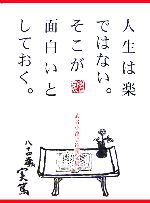 人生は楽
ではない。
そこが
面白いと
しておく。
八十四歳
実篤